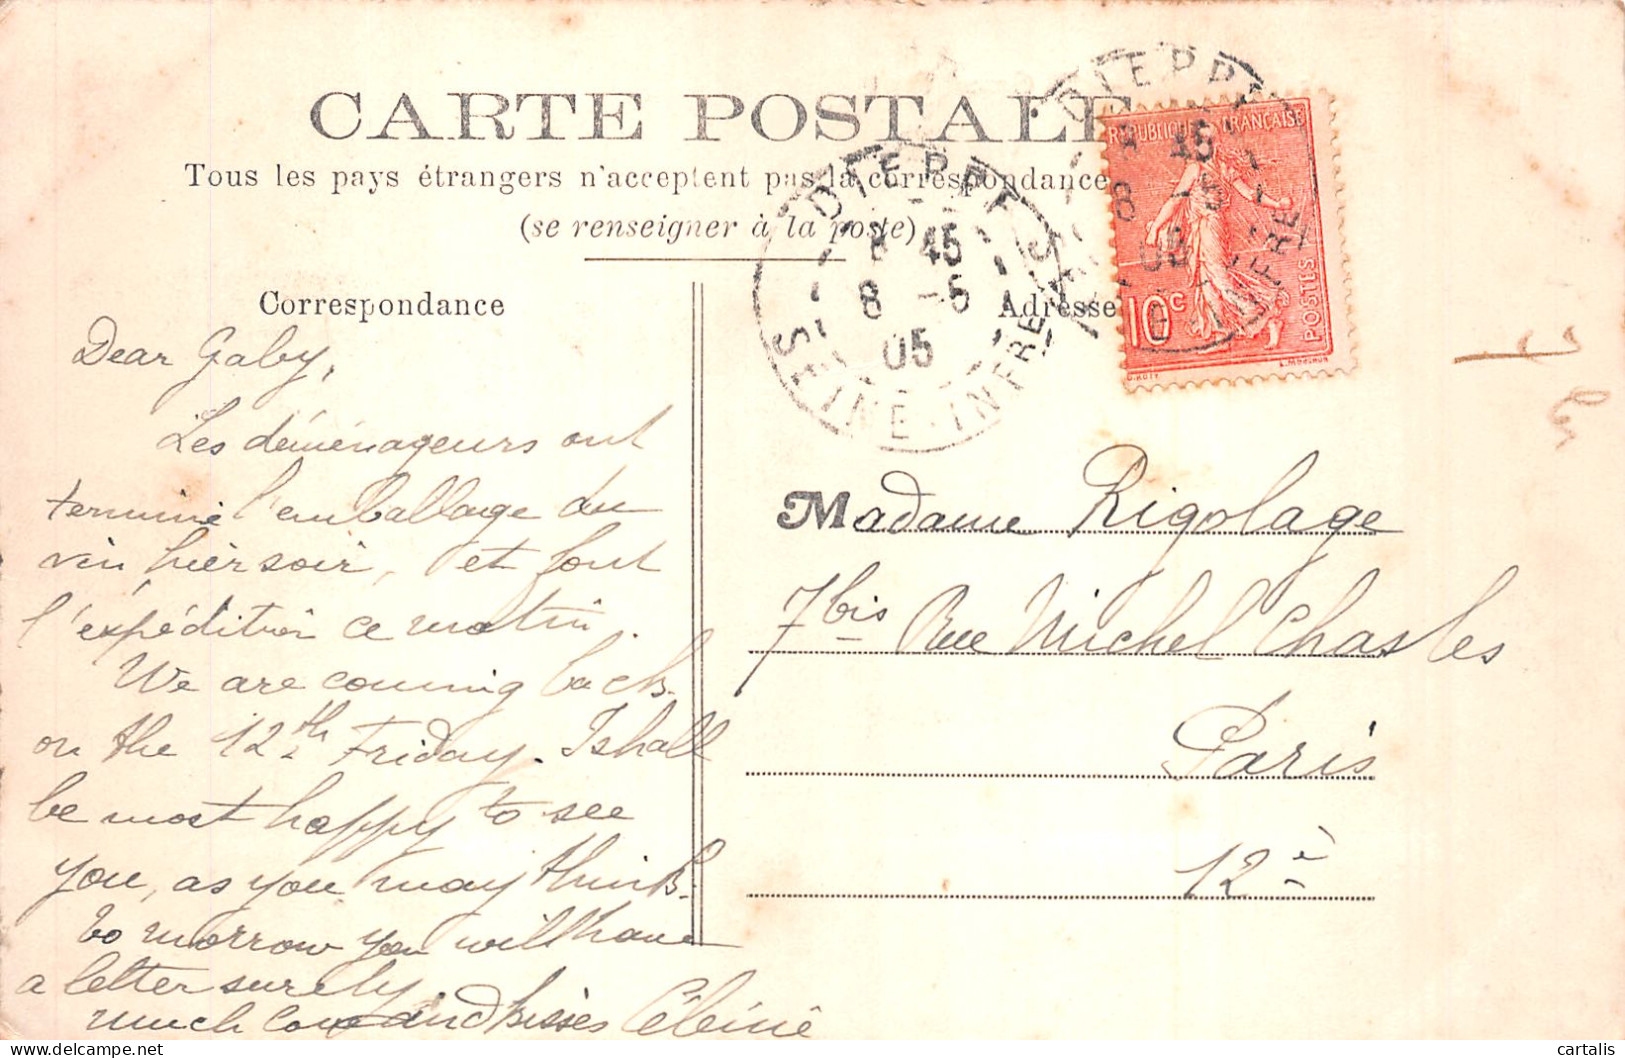 CARTE POSTALE
Tous les pays étrangers n'acceptent pas la correspondance
(se renseigner à la poste)
Correspondance
Adresse
DIEPPE
8 45
8 -5
05
SEINE-INFRE
DIEPPE
8 45
8 -5
05
INFRE
REPUBLIQUE FRANÇAISE
POSTES
10c
O.ROTY
Dear Gaby,
Les déménageurs ont
terminé l'emballage du
vin hier soir, et font
l'expédition ce matin.
We are coming back
on the 12th Friday. I shall
be most happy to see
you, as you may think.
to morrow you will have
a letter surely.
much love and kisses
Madame Rigolage
7bis Rue Michel Chasles
Paris
12è
cartalis